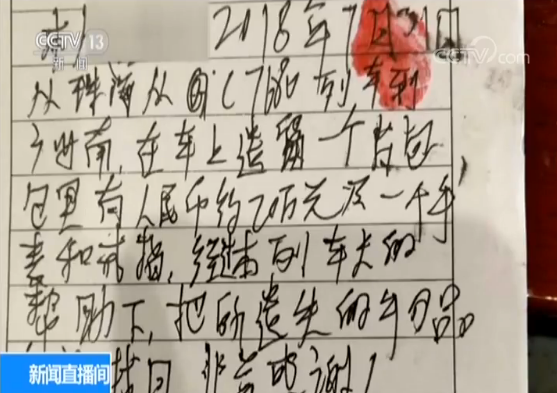 CCTV 13
新闻
CCTV.com
2018年7月
从珠海从 C7680列车到
广州南,在车上遗留一个背包,
包里有人民币约20万元及一个手
表和戒指,经 本列车长的
帮助下,把所遗失的 品
找回,非常感谢!
新闻直播间